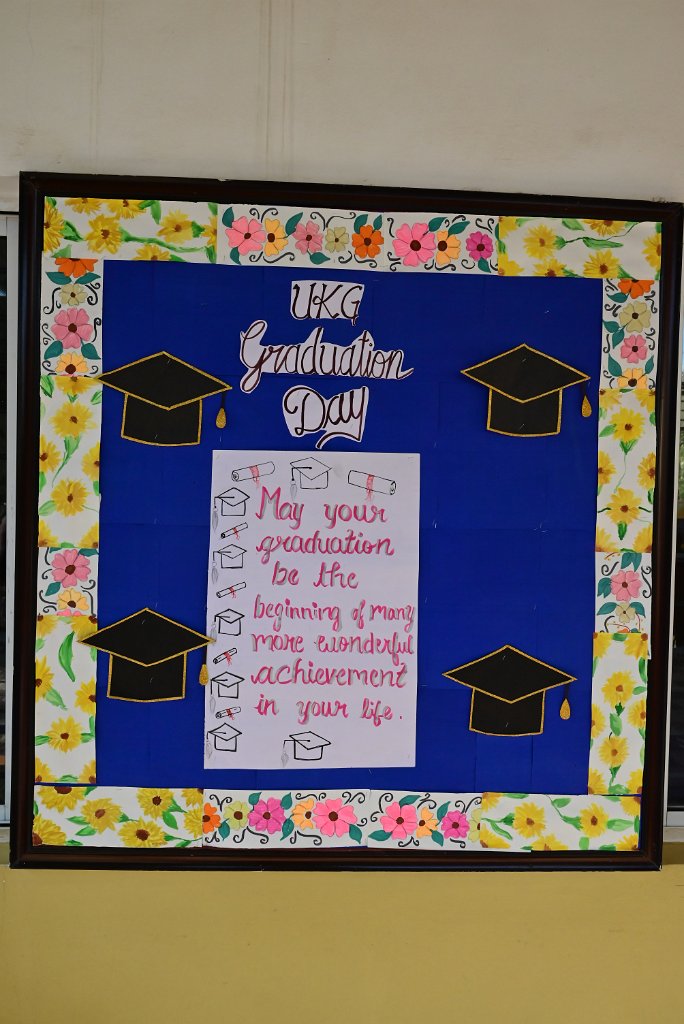 UKG
Graduation
Day
May your
graduation
be the
beginning of many
more wonderful
achievement
in your life.